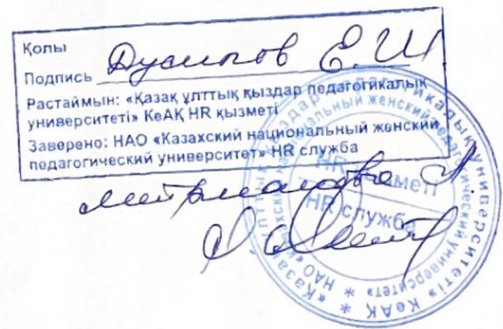 Қолы
Подпись Дусипов Е.Ш
Растаймын: «Қазақ ұлттық қыздар педагогикалық
университеті» КеАҚ HR қызметі
Заверено: НАО «Казахский национальный женский
педагогический университет» HR служба
HR қызметі
HR служба